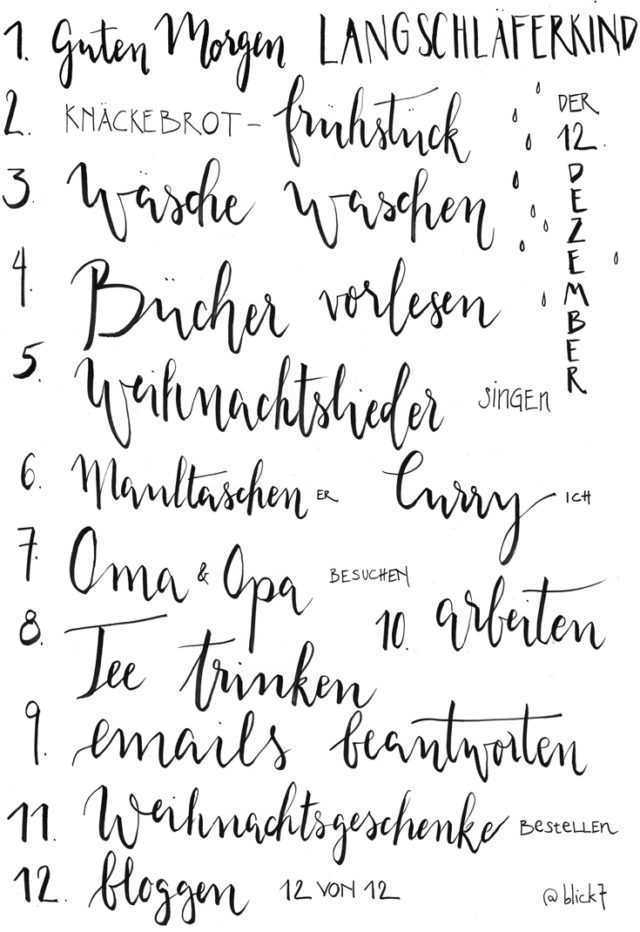 1. Guten Morgen LANGSCHLÄFERKIND
2. KNÄCKEBROT- frühstück
DER
12.
DEZEMBER
3. Wäsche waschen
4. Bücher vorlesen
5. Weihnachtslieder SINGEN
6. Maultaschen ER Curry ICH
7. Oma & Opa BESUCHEN
8. Tee trinken
10. arbeiten
9. emails beantworten
11. Weihnachtsgeschenke BESTELLEN
12. bloggen 12 VON 12
@blick7